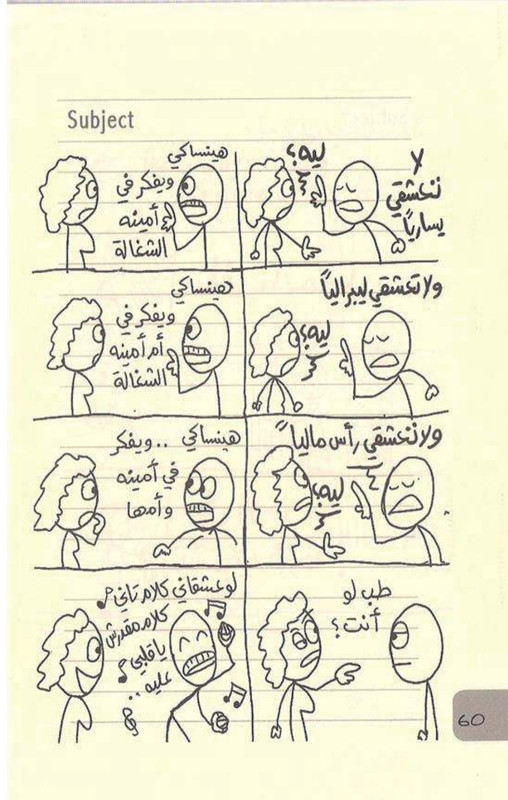 Subject
لا
تعشقي
يسارياً
ليه؟
هينساكي
ويفكر في
أمينه
الشغالة
ولا تعشقي ليبرالياً
ليه؟
هينساكي
ويفكر في
أم أمينه
الشغالة
ولا تعشقي رأس مالياً
ليه؟
هينساكي .. ويفكر
في أمينه
وأمها
طب لو
أنت؟
لو عشقاني كلام تاني
كلام مقدرش
يا قلبي
عليه ..
60